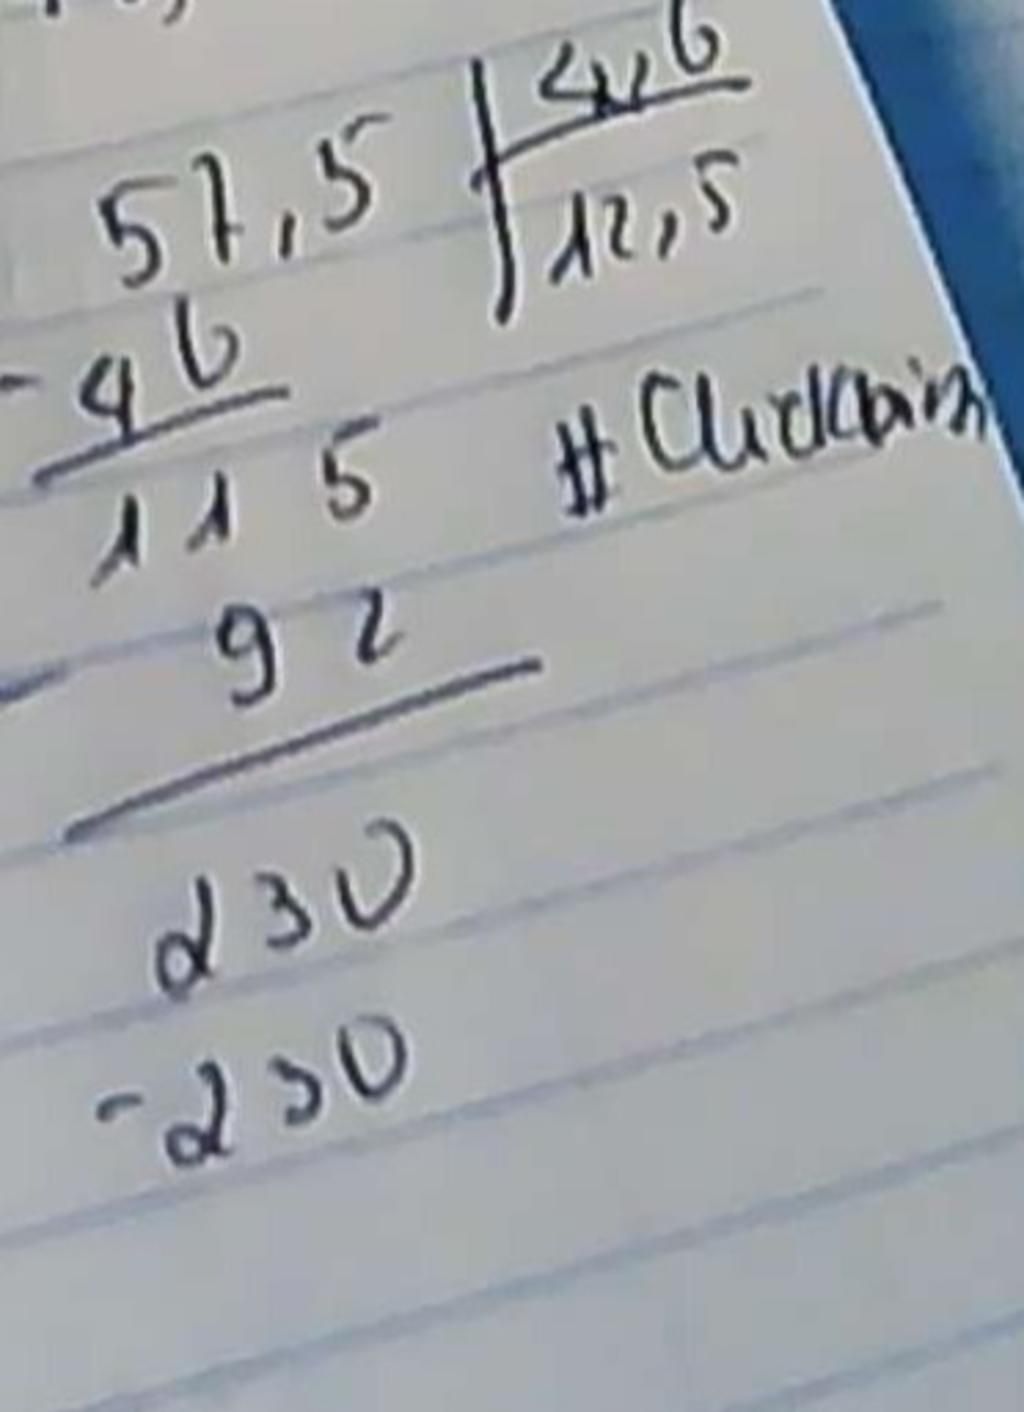 57,5 4,6
12,5
- 46
115
- 92
230
-230